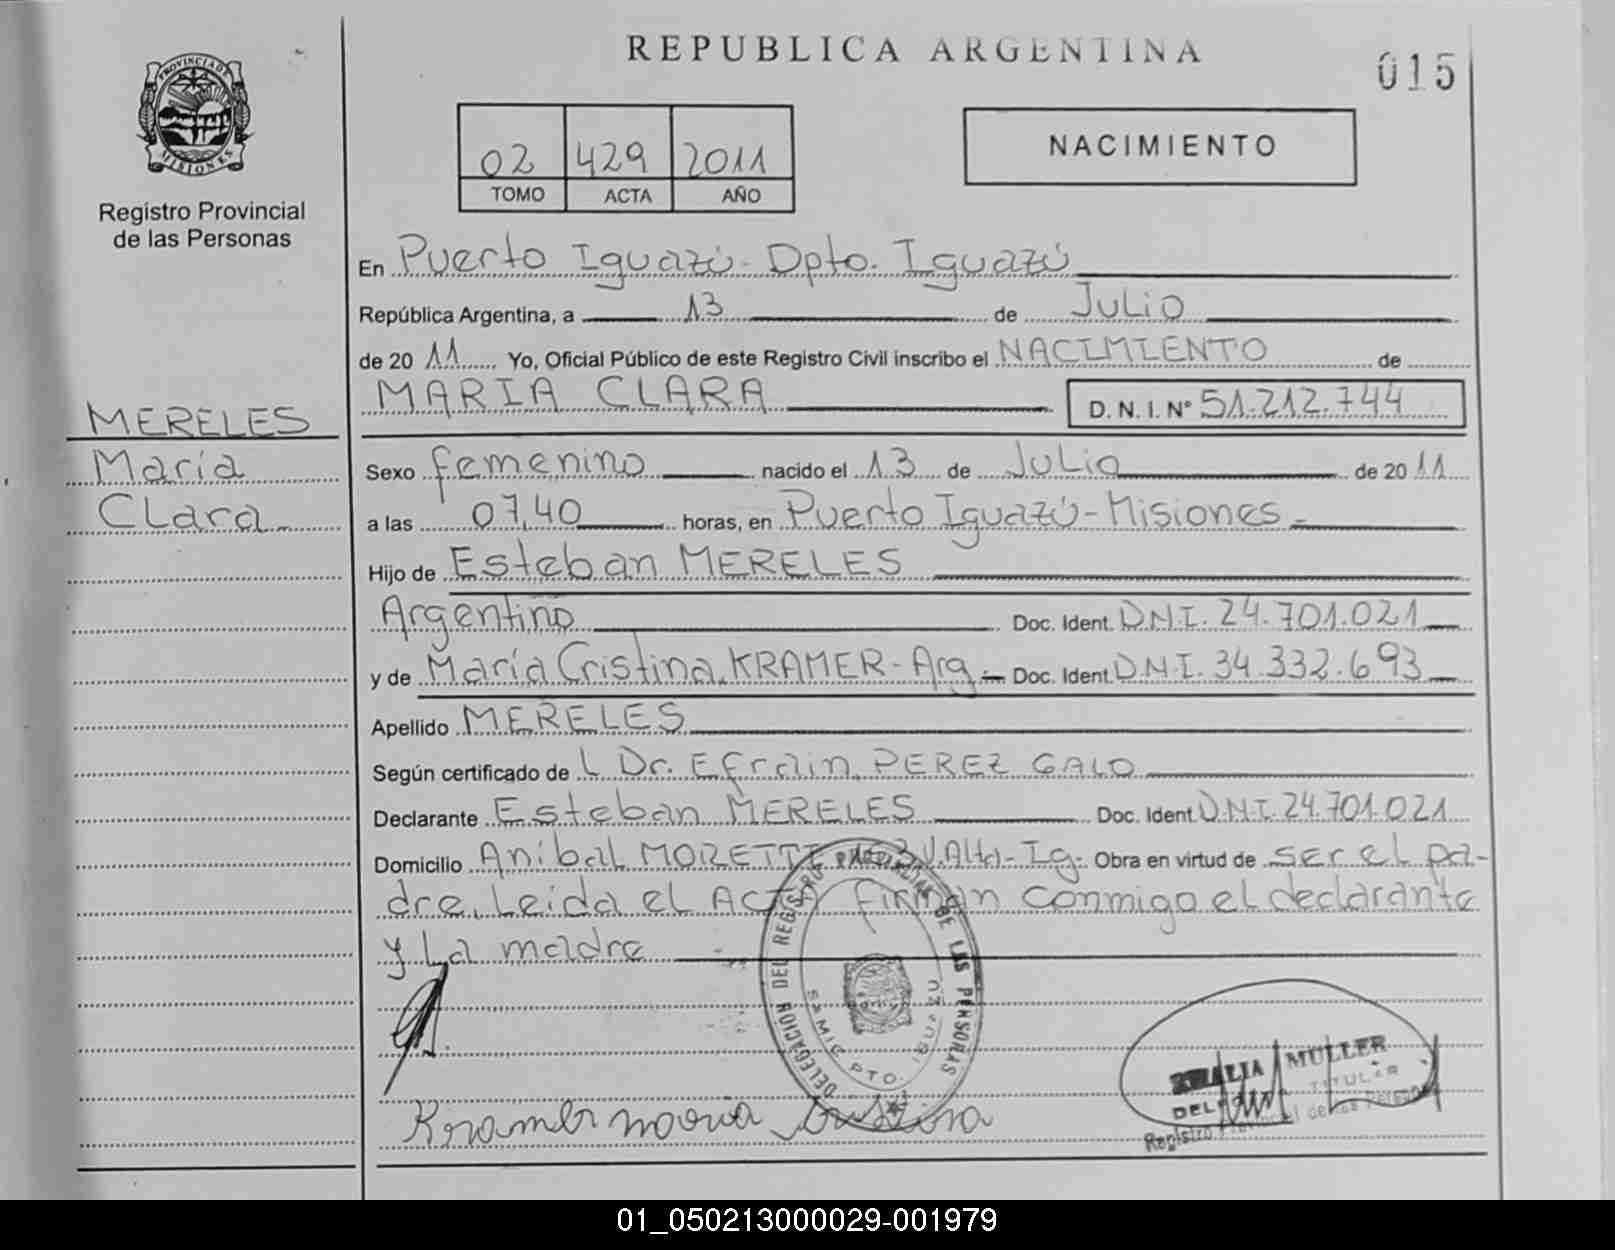 REPUBLICA ARGENTINA
015
PROVINCIA DE
MISIONES
Registro Provincial
de las Personas
02 429 2011
TOMO ACTA AÑO
NACIMIENTO
En Puerto Iguazú - Dpto. Iguazú
República Argentina, a 13 de Julio
de 2011 Yo, Oficial Público de este Registro Civil inscribo el NACIMIENTO de
MARIA CLARA D.N.I.Nº 51.212.744
MERELES
María
Clara
Sexo femenino nacido el 13 de Julio de 2011
a las 07,40 horas, en Puerto Iguazú - Misiones -
Hijo de Esteban MERELES
Argentino Doc. Ident. D.N.I. 24.701.021
y de María Cristina KRAMER - Arg - Doc. Ident D.N.I. 34.332.693
Apellido MERELES
Según certificado de L Dr. Efrain PEREZ GALO
Declarante Esteban MERELES Doc. Ident D.N.I. 24.701.021
Domicilio Anibal MORETTI V.Alta - Ig. Obra en virtud de ser el pa-
dre. Leida el ACTA firman conmigo el declarante
y La madre
DELEGACION DEL REGISTRO PROVINCIAL DE LAS PERSONAS
PTO. IGUAZU
Kramer maria cristina
MULLER
TITULAR
Registro Provincial de las Personas
01_050213000029-001979